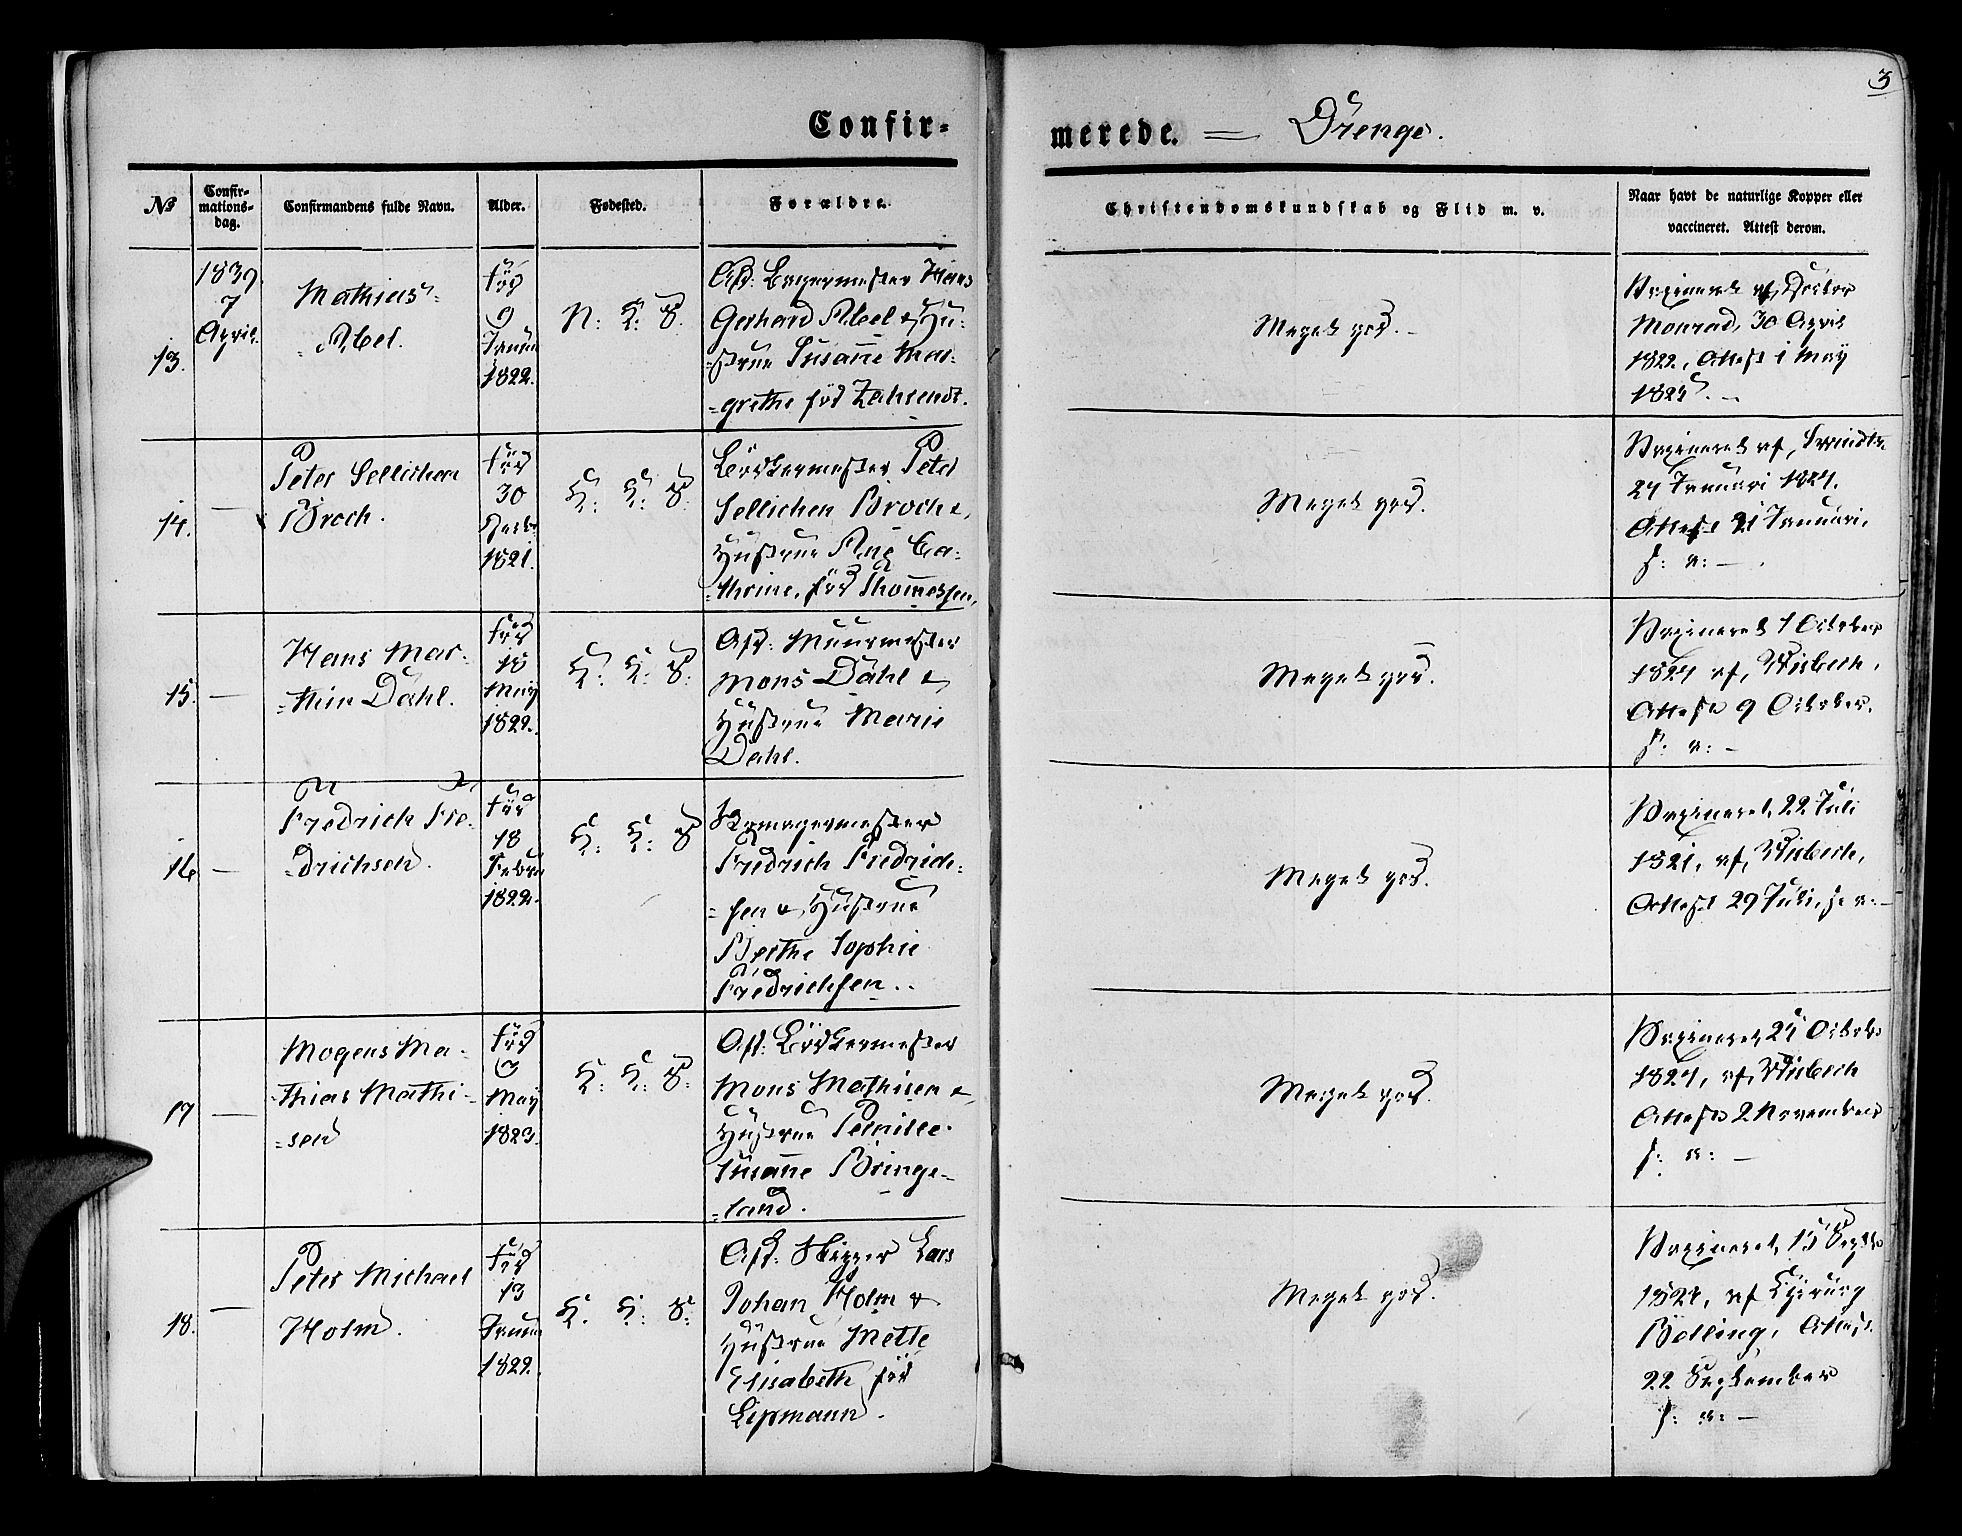 3
Confir-
merede. = Drenge.
No
Confir-
mations-
dag.
Confirmandens fulde Navn.
Alder.
Fødested.
Forældre.
Christendomskundskab og Flid m. v.
Naar havt de naturlige Kopper eller
vaccineret. Attest derom.
13.
1839.
7
April.
Mathias
Abel.
Fød
9
Januar
1822.
N: K: S:
Afd: Bagermester Hans
Gerhard Abel & Hu-
=strue Susanne Mar-
=grethe fød Zahrendt.
Meget god. -
Vaxineret af Doctor
Monrad, 30 April
1822, Attest i May
14.
—
Peter Sellichen
Broch.
Fød
30
1821.
K: K: S:
Bødkermester Peter
Sellichen Broch &
Hustrue Ca-
=thrine, fød Thomessen,
Meget god.
Vaxineret af
Januari 1824.
Attest 21 Januari,
s: a: -
15.
—
Hans Mar-
=thin Dahl.
Fød
18
May
1822.
K: K: S:
Afd: Muurmester
Mons Dahl &
Hustrue Marie
Dahl.
Meget god.
Vaxineret 1 October
1824 af Wisbech,
Attest 9 October.
s: a: -
16
—
Fredrich Fre-
=drichsen.
Fød
18
Februar
1822.
K: K: S
Fredrich Fredrich-
=sen & Hustrue
Berthe Sophie
Fredrichsen..
Meget god.
Vaxineret, 22 Juli
af Wisbech,
Attest 29 Juli, s: a: -
17
—
Mogens Ma-
=thias Mathi-
=sen
Fød
3
May
1823.
K: K: S:
Afd: Bødkermester
Mons Mathisen &
Hustrue Pernille
Susanne Bringe-
=land.
Meget god.
Vaxineret, 24 October
1824, af Wisbech
Attest 2 November
s: a: -
18.
—
Peter Michael
Holm.
Fød
13
Januar
1822.
K: K: S:
Afd: Skipper Lars
Johan Holm &
Hustrue Mette
Elisabeth fød
Lipmann.
Meget god.
Vaxineret, 15 Septbr
1824, af Chirurg
Bolling, Attest
22 September
s: a: -